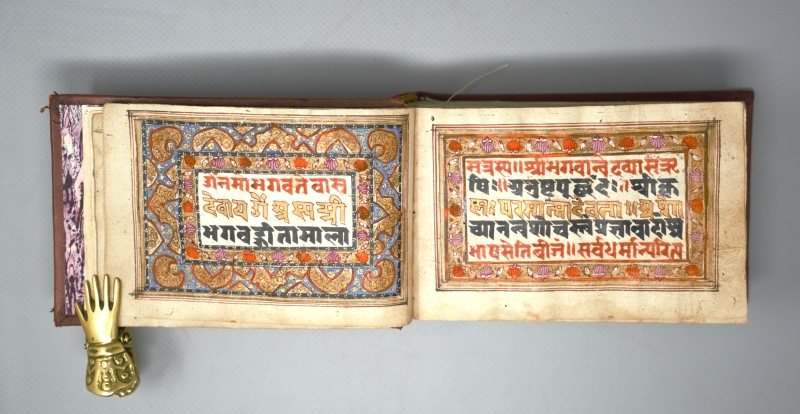 ॐनमोभगवतेवास
देवायॐअस्यश्री
भगवद्गीतामाला
मंत्रस्य॥श्रीभगवान्वेदव्यासऋ
षिः॥अनुष्टुप्छंदः॥श्रीकृ
ष्णःपरमात्मादेवता॥अशो
च्यानन्वशोचस्त्वंप्रज्ञावादांश्च
भाषसेतिबीजं॥सर्वधर्मान्परित्य